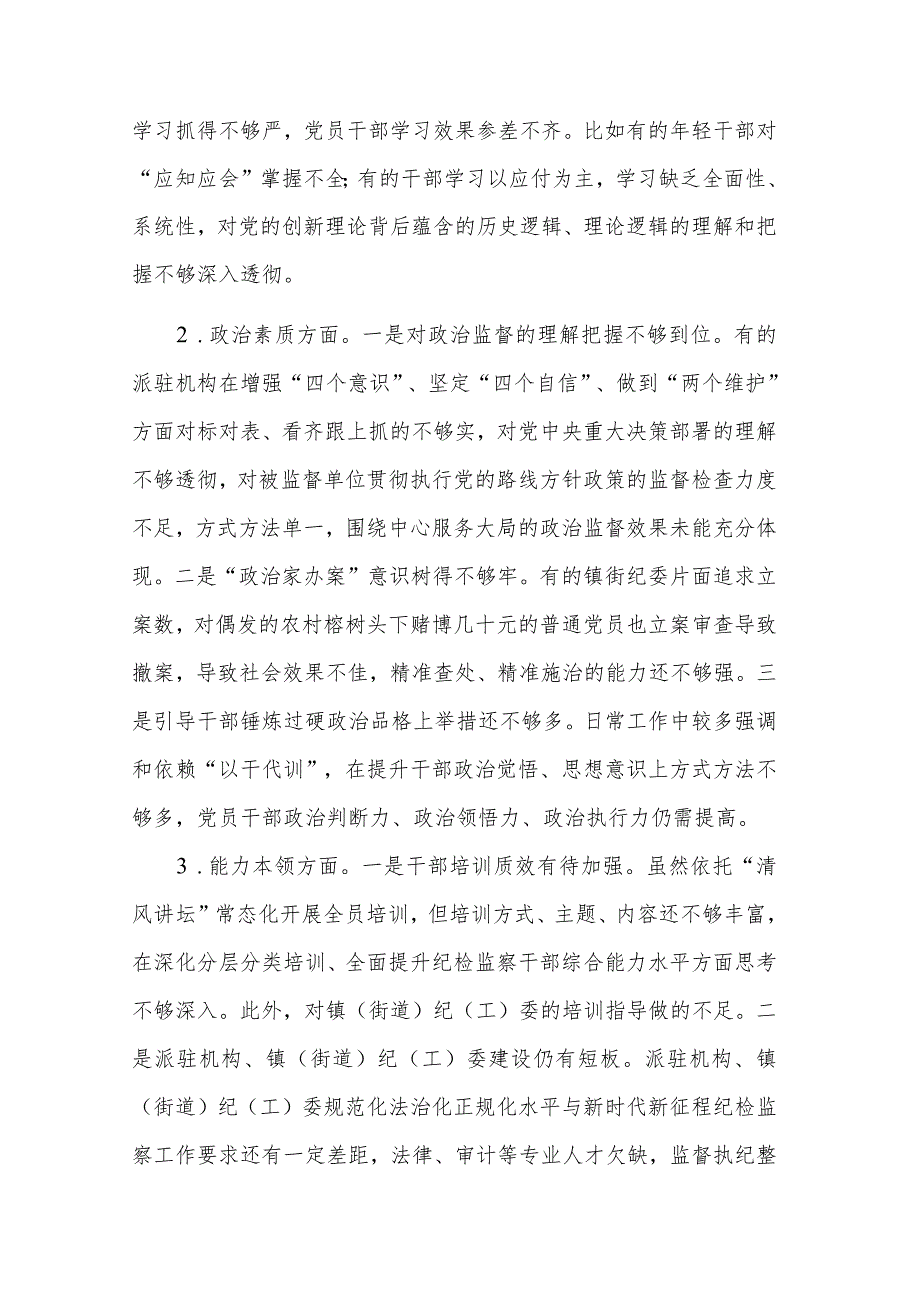 学习抓得不够严，党员干部学习效果参差不齐。比如有的年轻干部对
“应知应会”掌握不全；有的干部学习以应付为主，学习缺乏全面性、
系统性，对党的创新理论背后蕴含的历史逻辑、理论逻辑的理解和把
握不够深入透彻。
2．政治素质方面。一是对政治监督的理解把握不够到位。有的
派驻机构在增强“四个意识”、坚定“四个自信”、做到“两个维护”
方面对标对表、看齐跟上抓的不够实，对党中央重大决策部署的理解
不够透彻，对被监督单位贯彻执行党的路线方针政策的监督检查力度
不足，方式方法单一，围绕中心服务大局的政治监督效果未能充分体
现。二是“政治家办案”意识树得不够牢。有的镇街纪委片面追求立
案数，对偶发的农村榕树头下赌博几十元的普通党员也立案审查导致
撤案，导致社会效果不佳，精准查处、精准施治的能力还不够强。三
是引导干部锤炼过硬政治品格上举措还不够多。日常工作中较多强调
和依赖“以干代训”，在提升干部政治觉悟、思想意识上方式方法不
够多，党员干部政治判断力、政治领悟力、政治执行力仍需提高。
3．能力本领方面。一是干部培训质效有待加强。虽然依托“清
风讲坛”常态化开展全员培训，但培训方式、主题、内容还不够丰富，
在深化分层分类培训、全面提升纪检监察干部综合能力水平方面思考
不够深入。此外，对镇（街道）纪（工）委的培训指导做的不足。二
是派驻机构、镇（街道）纪（工）委建设仍有短板。派驻机构、镇
（街道）纪（工）委规范化法治化正规化水平与新时代新征程纪检监
察工作要求还有一定差距，法律、审计等专业人才欠缺，监督执纪整